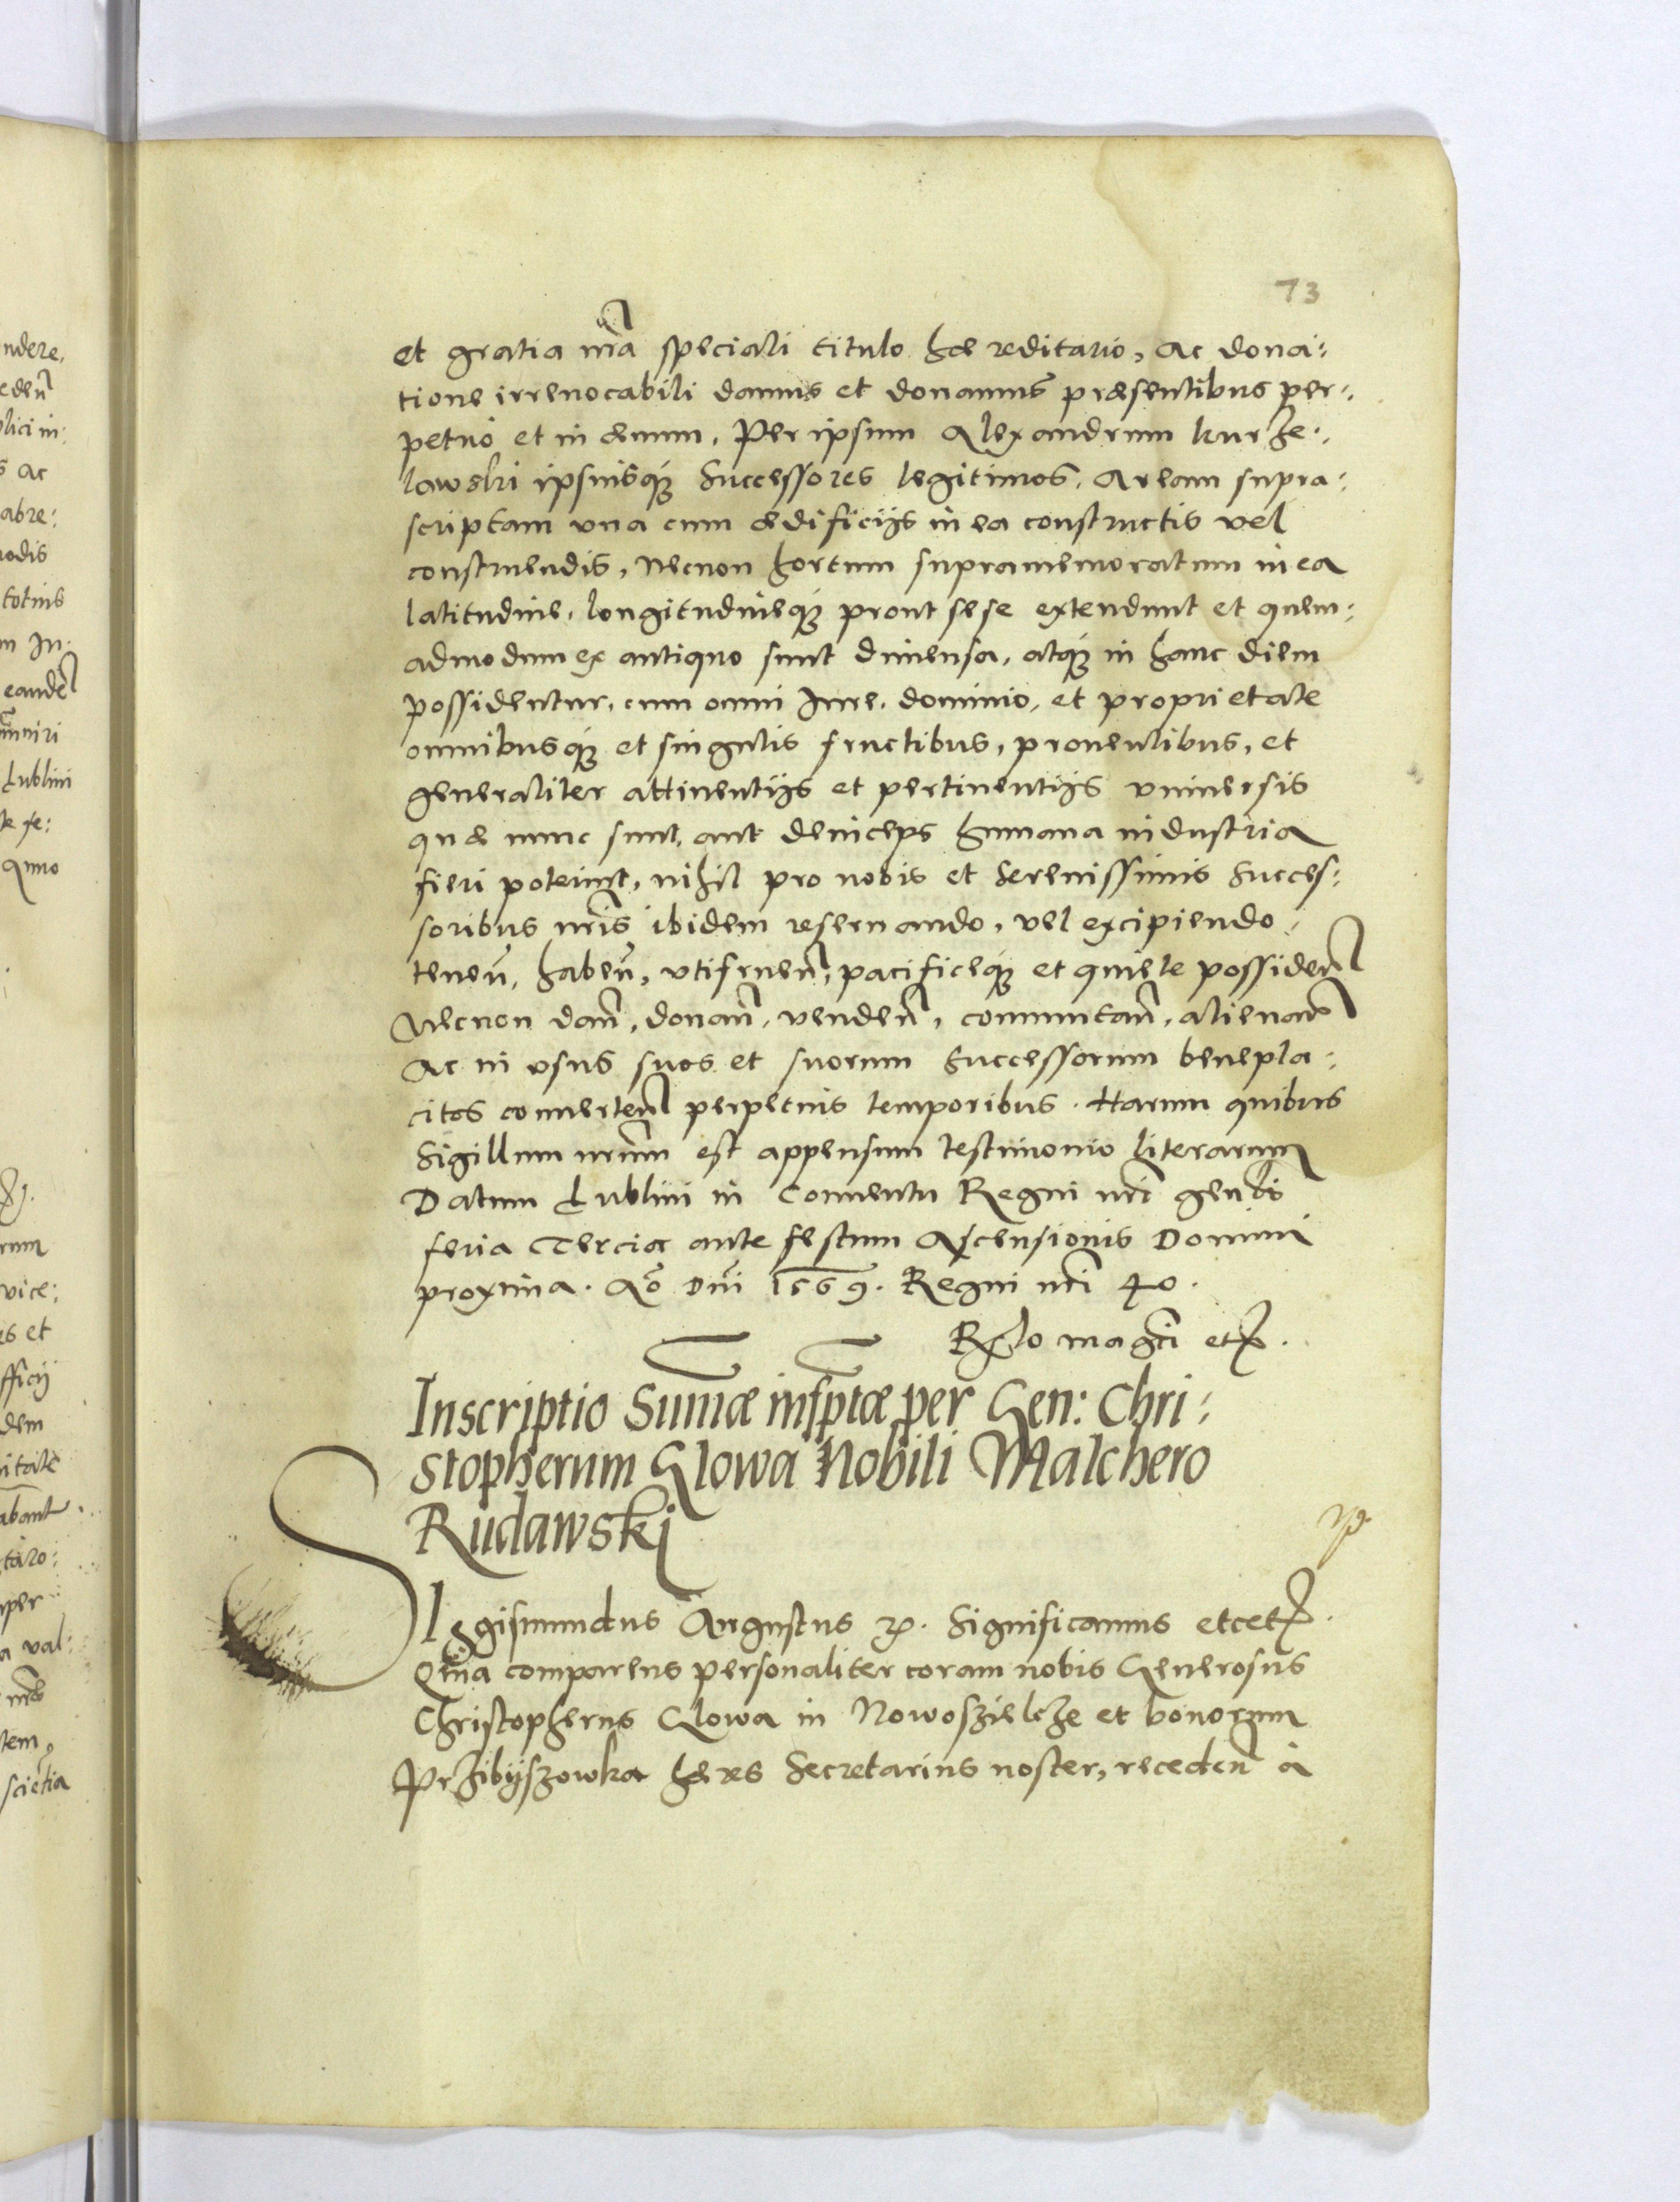 73
et gratia nr̃a speciali titulo hæreditario, ac dona:
tione irrevocabili damus et donamus præsentibus per:
petuo et in ævum, Per ipsum Alexandrum kurze:
lawski ipsiusq́ꝫ Successores legitimos. Aream supra:
scriptam una cum ædificijs in ea constructis vel
construendis, necnon hortum supramemoratum in ea
latitudine, longitudineq́ꝫ prout sese extendunt et quem:
admodum ex antiquo sunt dimensa, atq́ꝫ in hanc diem
possidentur, cum omni Iure, dominio, et proprietate
omnibusq́ꝫ et singulis fructibus, proventibus, et
generaliter attinentijs et pertinentijs universis
quæ nunc sunt, aut deinceps humana industria
fieri poterint, nihil pro nobis et Serenissimis Succes:
soribus nr̃is ibidem reservando, vel excipiendo
teneñ, habeñ, utifrueñ, pacificeq́ꝫ et quiete possideñ
Necnon dañ, donañ, vendeñ, commutañ, alienañ
Ac in usus suos et suorum Successorum benepla:
citos converteñ perpetuis temporibus. Harum quibus
Sigillum nrũm est appensum testimonio literarum
Datum Lublini in Conventu Regni nr̃i gen̄li
feria Tercia ante festum Ascensionis Domini
proxima. Aõ Dñi 1569. Regni nr̃i 40.
Rlo mag̃ci etc.
Inscriptio Sum̃æ insp̃tæ per Gen: Chri:
stopherum Glowa Nobili Malchero
Rudawskj
Sigismundus Augustus ꝛc. Significamus etcet.
Qm̃a comparens personaliter coram nobis Generosus
Christopherus Glowa in Nowoszielcze et bonorum
Przibijszowka hæres Secretarius noster, recedeñ à
ndere,
edeñ
lici in:
s ac
abre:
odis
totius
m In:
eandẽ
Lublini
Anno
rum
vice:
es et
fficij
dem
itate
abant
taro:
per
a val:
tem,
sciẽtia